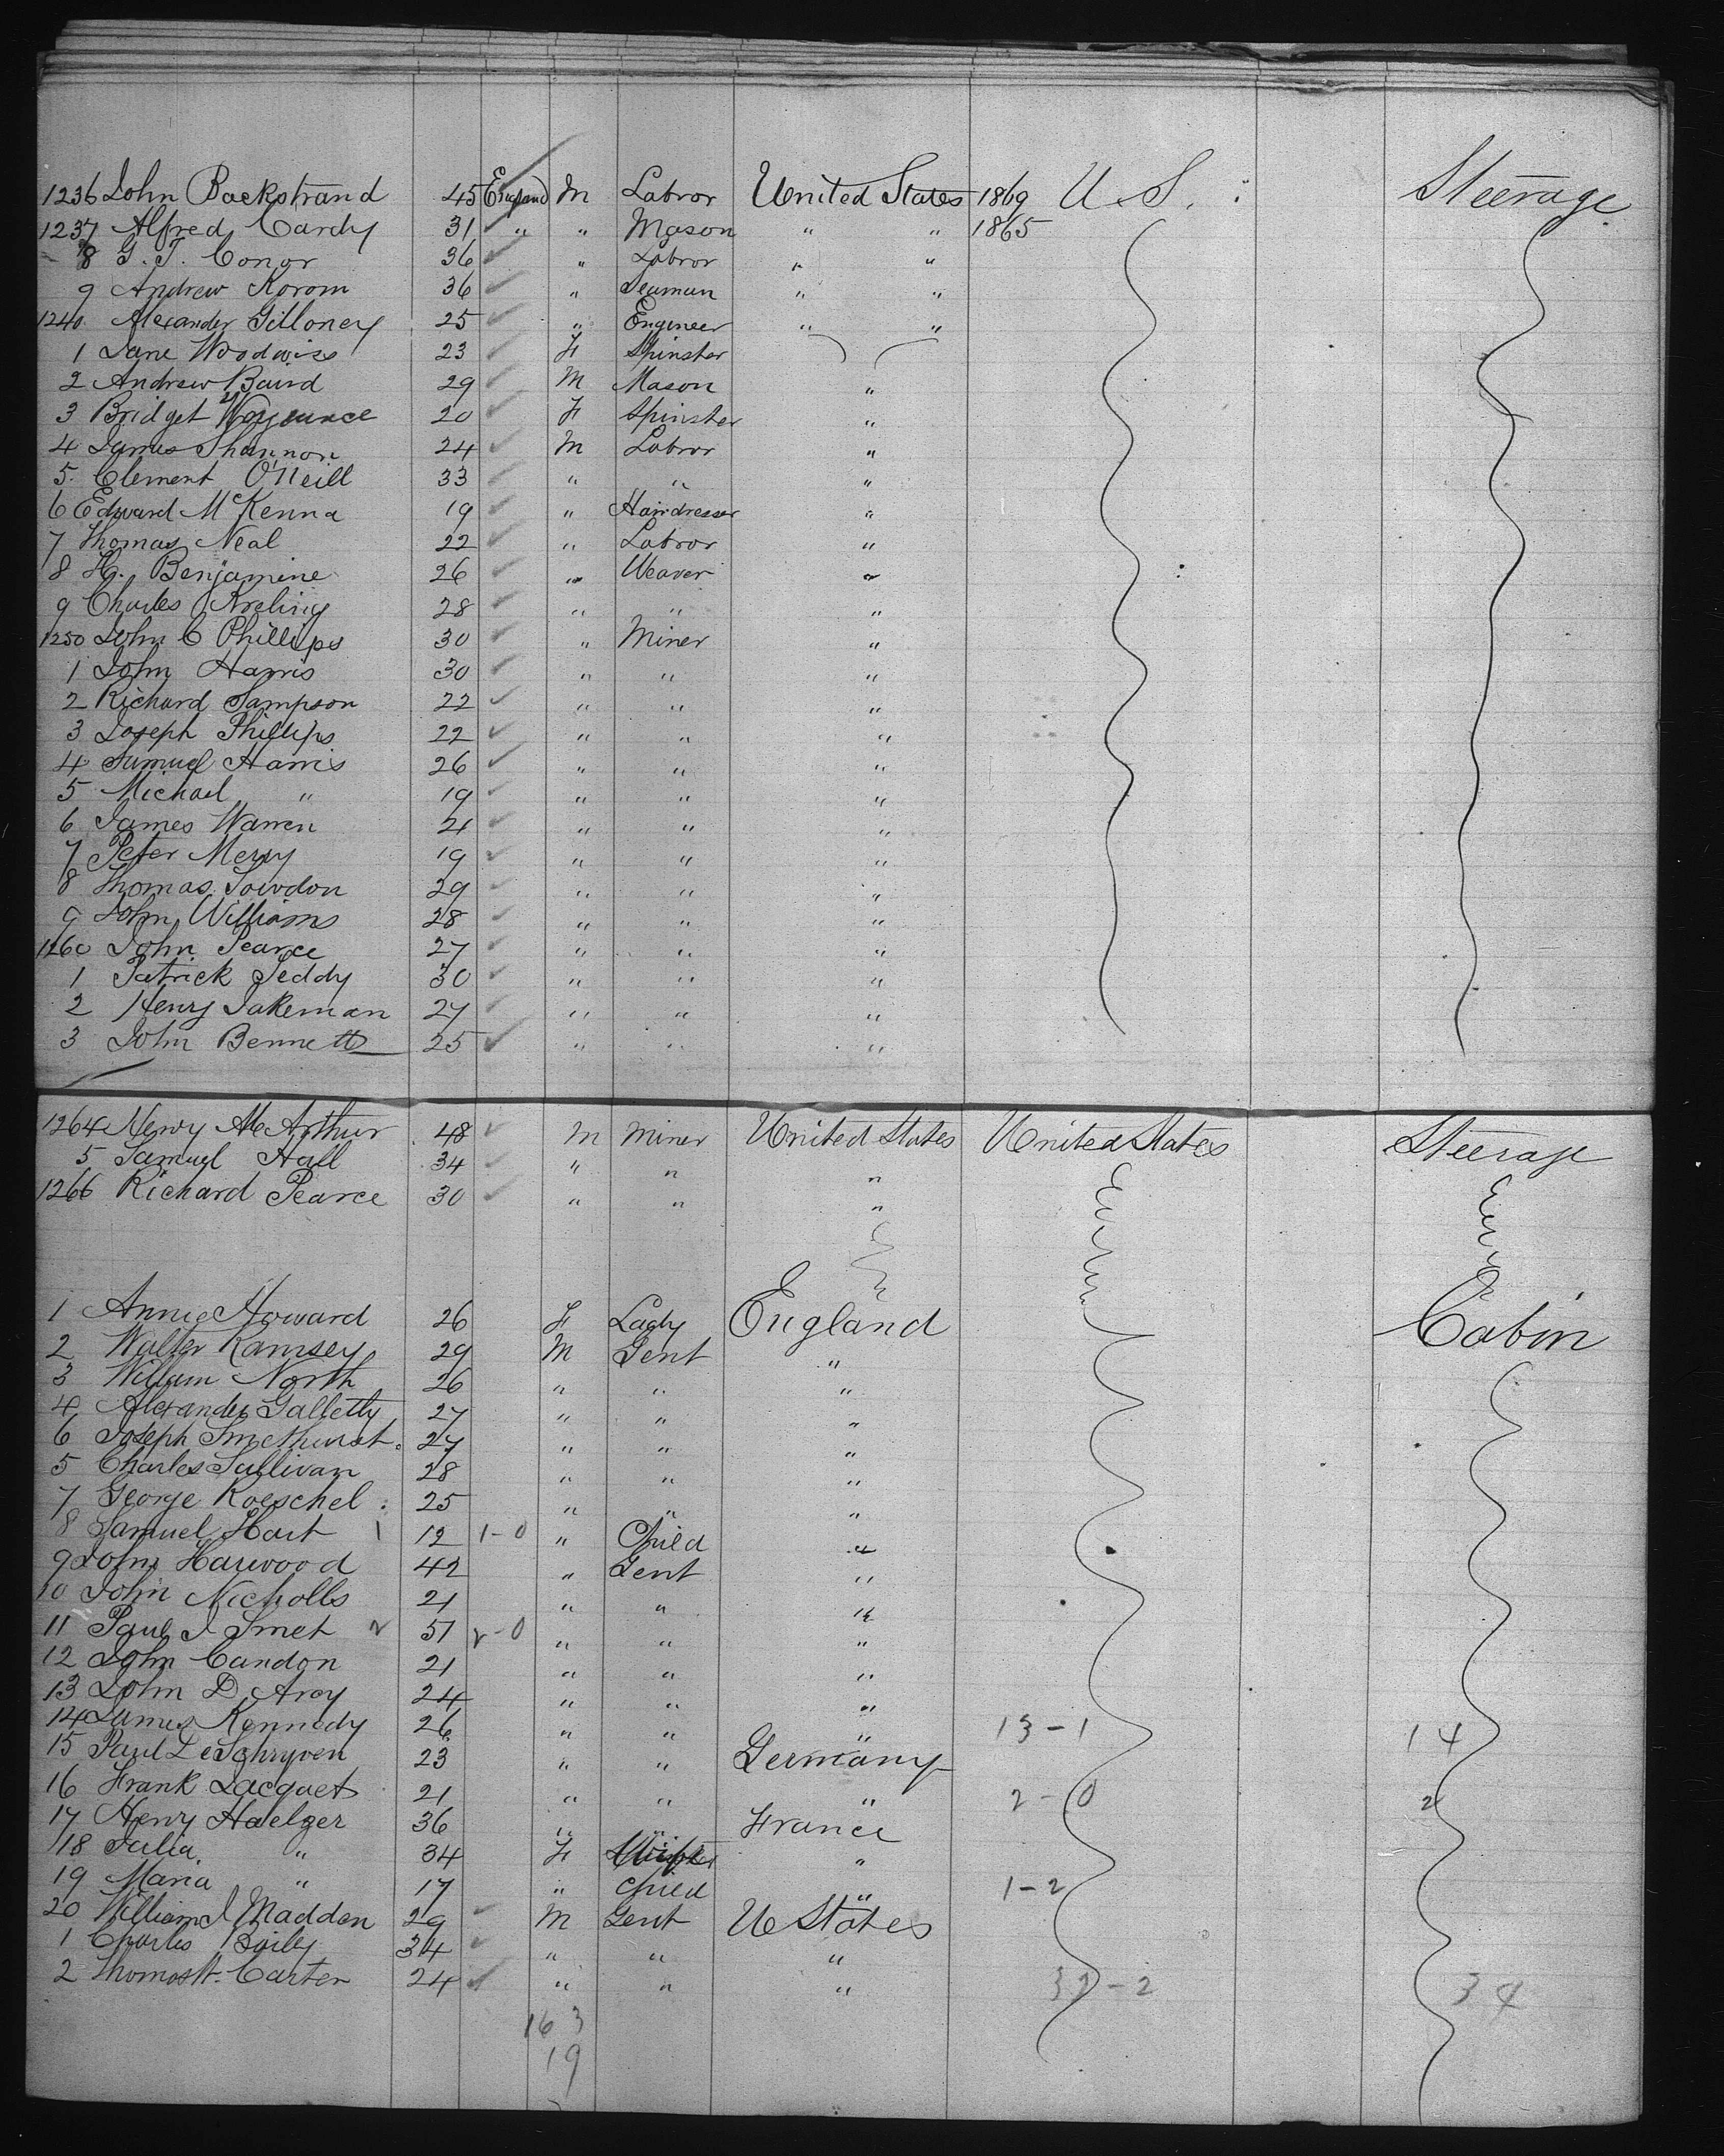 1236 John Backstrand 45 England M Labror United States 1869 U. S. Steerage
1237 Alfred Cardy 31 " " Mason " " 1865
8 G. T. Conor 36 " Labror " "
9 Andrew Korom 36 " Seaman " "
1240 Alexander Gilloney 25 " Engineer " "
1 Jane Woodwiss 23 F Spinster
2 Andrew Baird 29 M Mason "
3 Bridget 20 F Spinster "
4 James Shannon 24 M Labror "
5 Clement O'Neill 33 " " "
6 Edward McKenna 19 " Hairdresser "
7 Thomas Neal 22 " Labror "
8 H. Benjamine 26 " Weaver "
9 Charles Kreling 28 " " "
1250 John C Phillips 30 " Miner "
1 John Harris 30 " " "
2 Richard Sampson 22 " " "
3 Joseph Phillips 22 " " "
4 Samuel Harris 26 " " "
5 Michael " 19 " " "
6 James Warren 21 " " "
7 Peter Merry 19 " " "
8 Thomas Sowdon 29 " " "
9 John Williams 28 " " "
1260 John Pearce 27 " " "
1 Patrick Peddy 30 " " "
2 Henry Jakeman 27 " " "
3 John Bennetts 25 " " "
1264 Henry McArthur 48 M Miner United States United States Steerage
5 Samuel Hall 34 " " "
1266 Richard Pearce 30 " " "
1 Annie Howard 26 F Lady England Cabin
2 Walter Ramsey 29 M Gent "
3 William North 26 " " "
4 Alexander Galletly 27 " " "
6 Joseph Smethurst 27 " " "
5 Charles Sullivan 28 " " "
7 George Koeschel 25 " " "
8 Samuel Hart 1 12 1-0 " Child "
9 John Harwood 42 " Gent "
10 John Nicholls 21 " " "
11 Paul J Smet 2 51 2-0 " " "
12 John Candon 21 " " "
13 John D Arcy 24 " " "
14 James Kennedy 26 " " " 13-1 14
15 Paul DeSchryven 23 " " Germany
16 Frank Lacquet 21 " " " 2-0 2
17 Henry Haelger 36 " " France
18 Julia " 34 F "
19 Maria " 17 " Child " 1-2
20 William J Madden 29 M Gent U States
1 Charles Baily 34 " " "
2 Thomas H. Carter 24 " " " 32-2 34
16 3
19